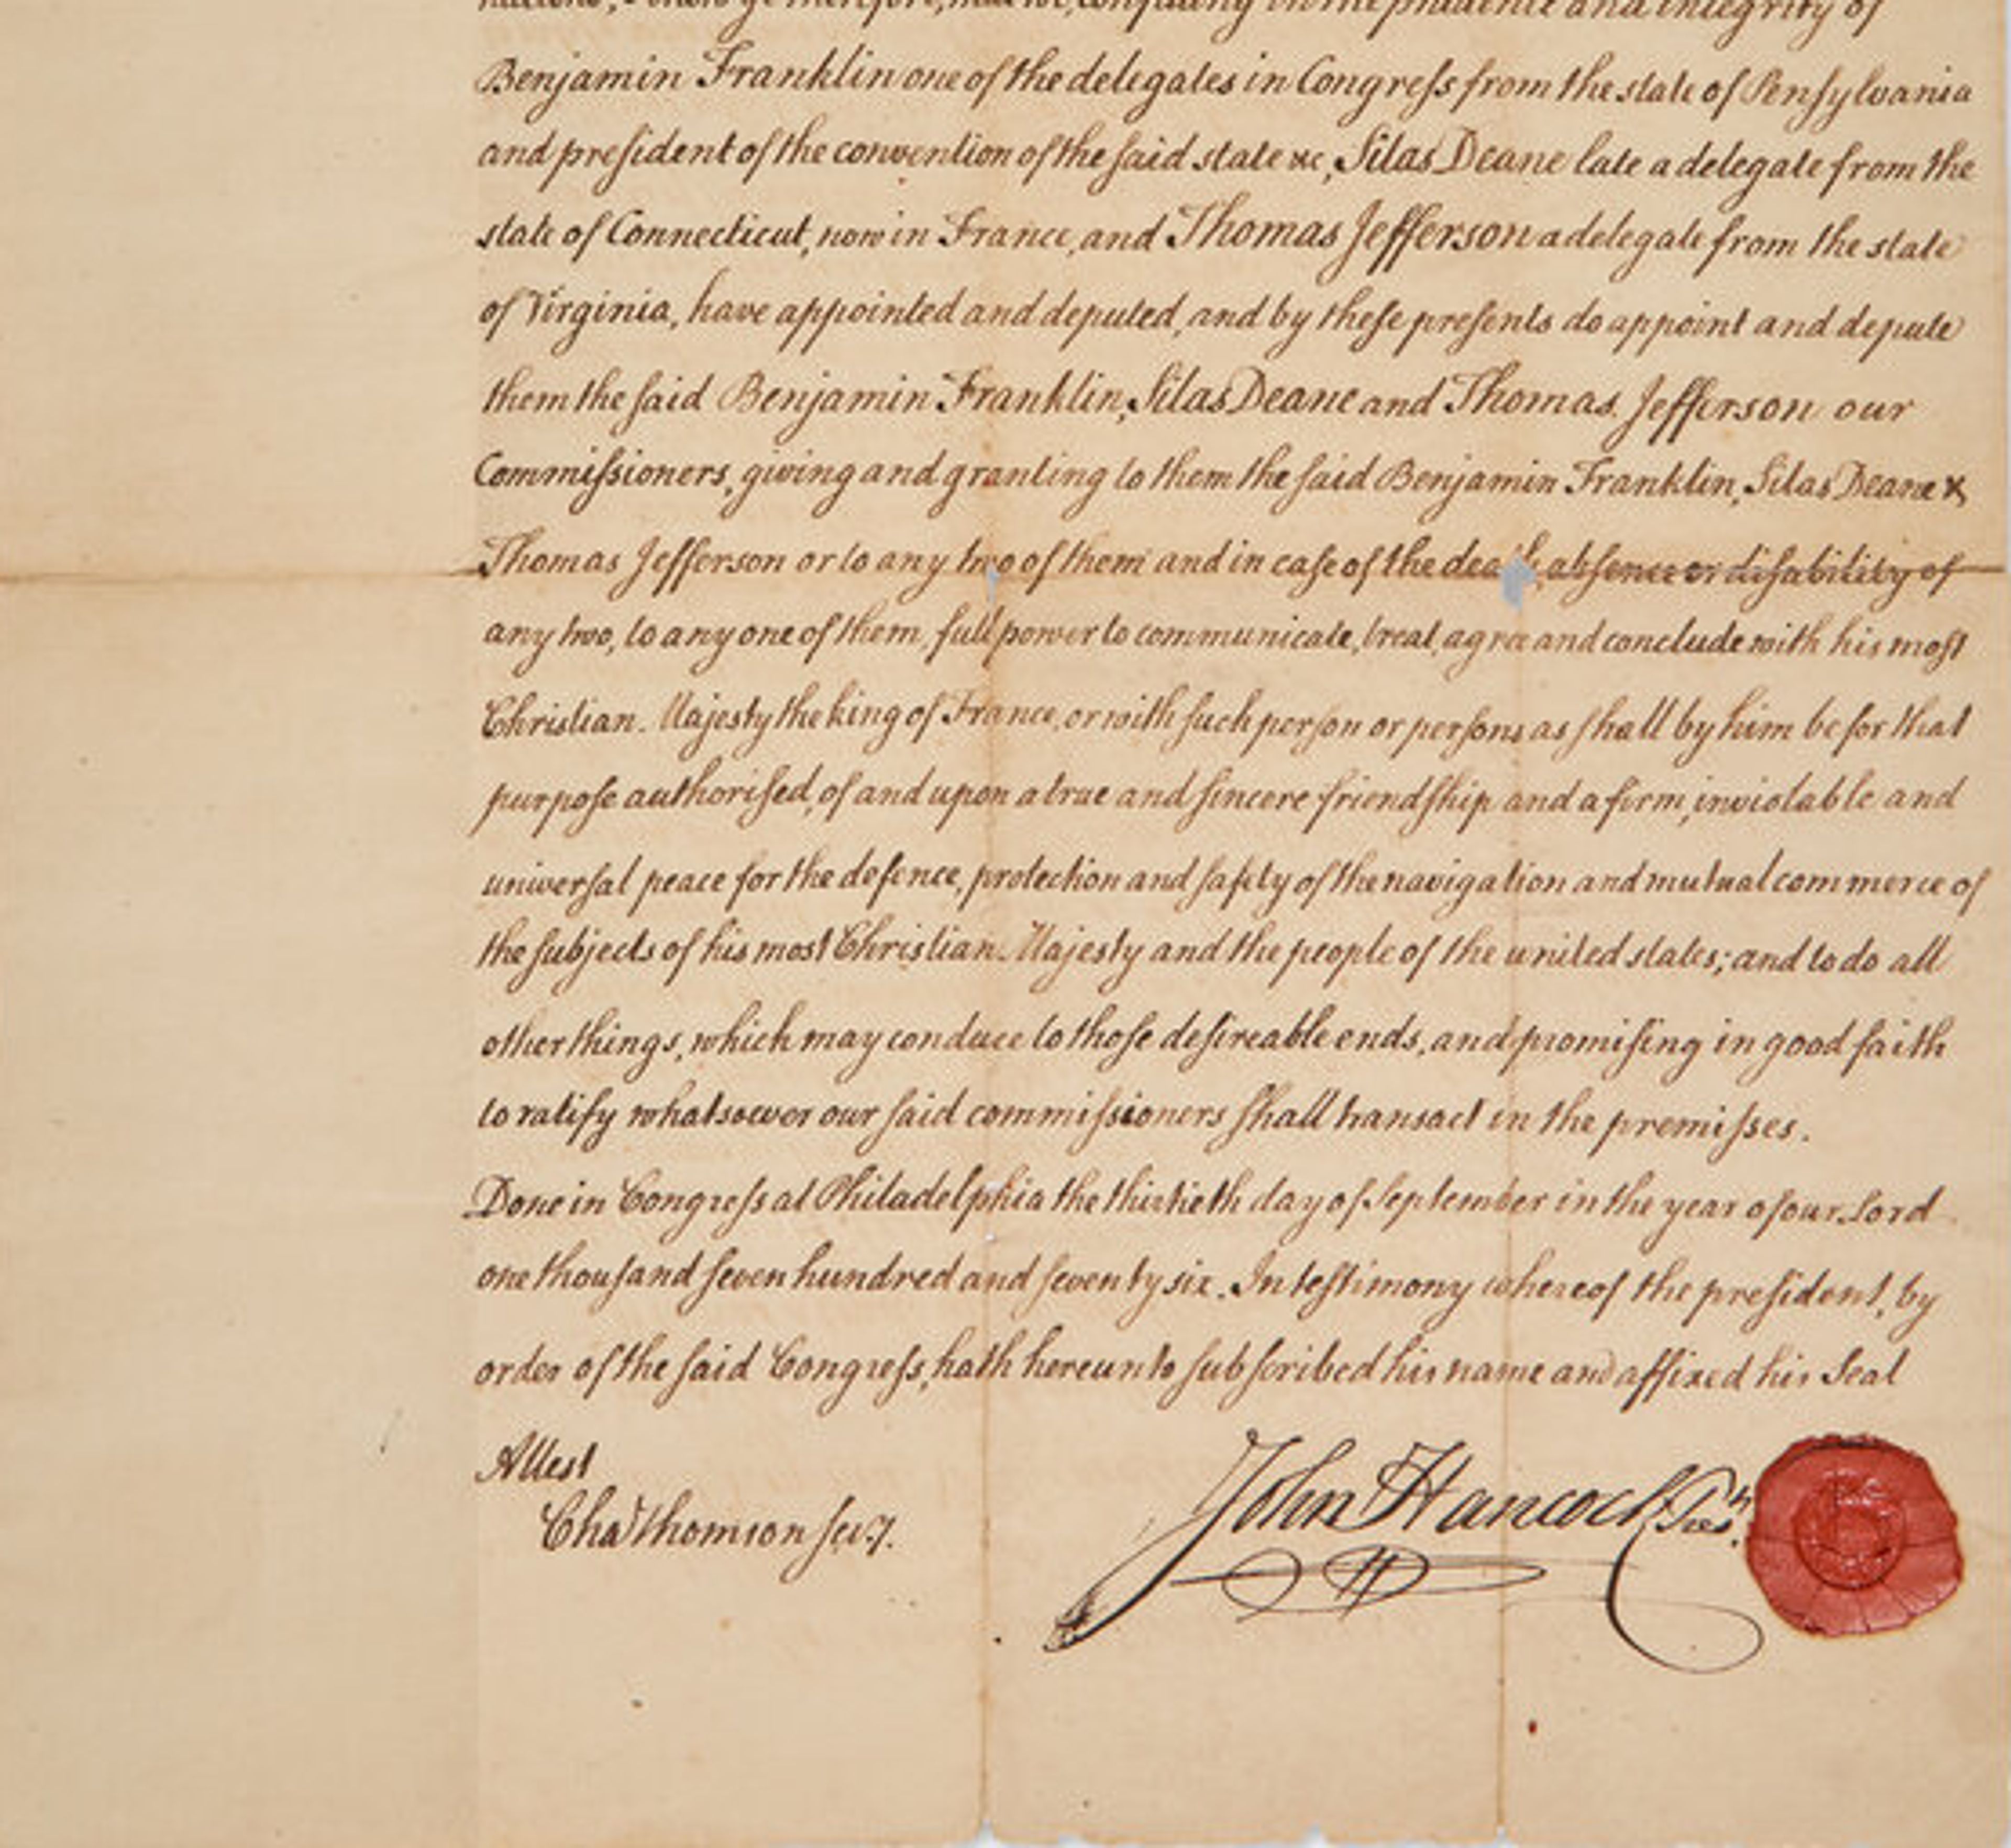 nations, Know ye therefore, that we, confiding in the prudence and integrity of
Benjamin Franklin one of the delegates in Congreſs from the state of Penſylvania
and preſident of the convention of the ſaid state &c, Silas Deane late a delegate from the
state of Connecticut, now in France, and Thomas Jefferson a delegate from the state
of Virginia, have appointed and deputed, and by theſe preſents do appoint and depute
them the ſaid Benjamin Franklin, Silas Deane and Thomas Jefferson our
Commiſsioners, giving and granting to them the ſaid Benjamin Franklin, Silas Deane &
Thomas Jefferson or to any two of them and in caſe of the death abſence or diſability of
any two, to any one of them, full power to communicate, treat, agree and conclude with his moſt
Christian Majesty the king of France, or with ſuch perſon or perſons as ſhall by him be for that
purpoſe authoriſed, of and upon a true and ſincere friendſhip and a firm, inviolable and
univerſal peace for the defence, protection and ſafety of the navigation and mutual commerce of
the ſubjects of his most Christian Majesty and the people of the united states; and to do all
other things, which may conduce to thoſe deſireable ends, and promiſing in good faith
to ratify whatsoever our ſaid commiſsioners ſhall transact in the premiſses.
Done in Congreſs at Philadelphia the thirtieth day of September in the year of our Lord
one thouſand ſeven hundred and ſeventy six. In teſtimony whereof the preſident, by
order of the ſaid Congreſs, hath hereunto ſubſcribed his name and affixed his Seal
Attest
Chaˢ Thomson ſecy.
John Hancock Presᵗ